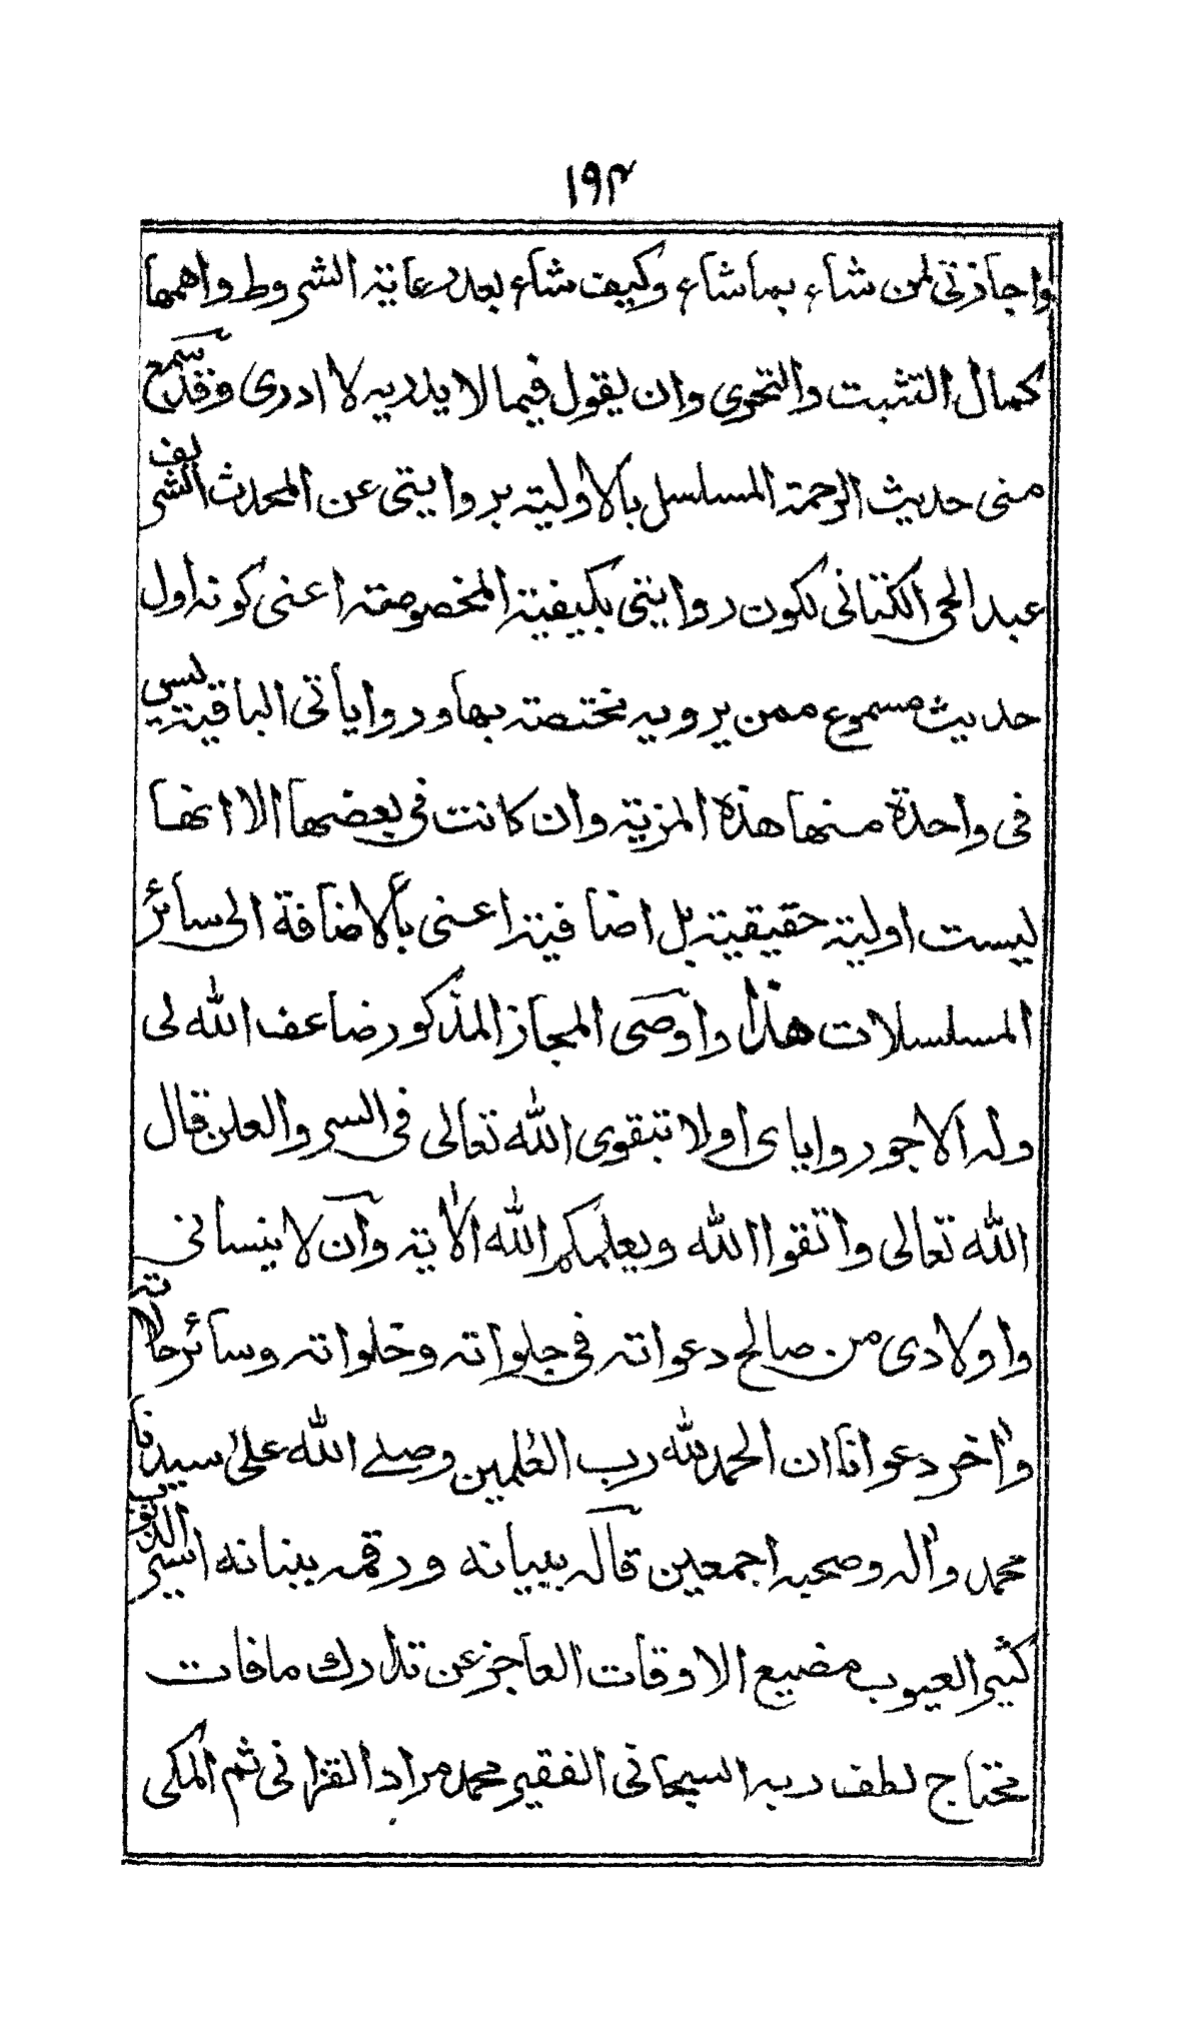 ۱۹۴
واجازتی لمن شاء بماشاء وکیف شاء بعد رعایۃ الشروط واھمھا
کمال التثبت والتحری وان یقول فیما لا یدریہ لا ادری وقد سمع
منی حدیث الرحمۃ المسلسل بالاولیۃ بروایتی عن المحدث الشریف
عبد الحی الکتانی لکون روایتی بکیفیۃ المخصوصۃ اعنی کونہ اول
حدیث مسموع ممن یرویہ مختصۃ بھا وروایاتی الباقیۃ لیس
فی واحدۃ منھا ھذہ المزیۃ وان کانت فی بعضھا الا انھا
لیست اولیۃ حقیقیۃ بل اضافیۃ اعنی بالاضافۃ الی سائر
المسلسلات ھذا واوصی المجاز المذکور ضاعف اللہ لی
ولہ الاجور وایای اولا بتقوی اللہ تعالی فی السر والعلن قال
اللہ تعالی واتقوا اللہ ویعلمکم اللہ الاٰیۃ وان لا ینسانی
واولادی من صالح دعواتہ فی جلواتہ وخلواتہ وسائر حالاتہ
واٰخر دعوانا ان الحمد للہ رب العٰلمین وصلے اللہ علیٰ سیدنا
محمد واٰلہ وصحبہ اجمعین قالہ ببیانه ورقمہ ببنانه اسیر الذنوب
کثیر العیوب مضیع الاوقات العاجز عن تدارك مافات
محتاج لطف ربہ السبحانی الفقیر محمد مراد القزانی ثم المکی